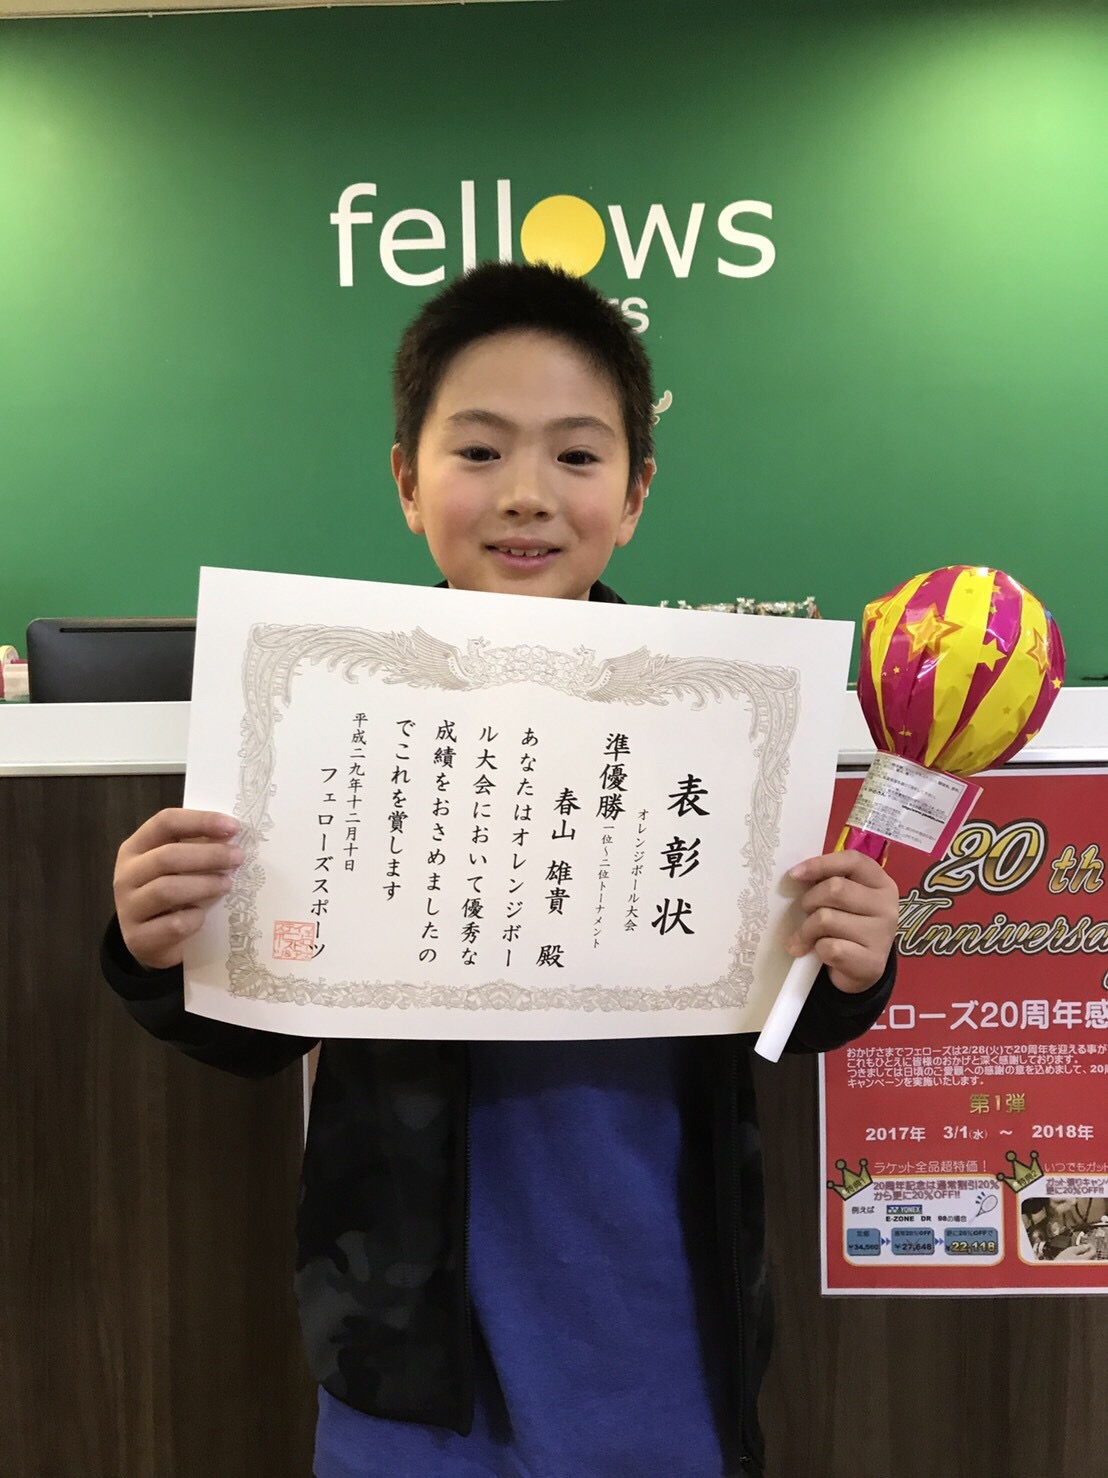 fellows
rs
表彰状
オレンジボール大会
準優勝 一位～二位トーナメント
春山 雄貴 殿
あなたはオレンジボー
ル大会において優秀な
成績をおさめましたの
でこれを賞します
平成二九年十二月十日
フェローズスポーツ
20th
Anniversa
ェローズ20周年感
おかげさまでフェローズは2/28(火)で20周年を迎える事が
これもひとえに皆様のおかげと深く感謝しております。
つきましては日頃のご愛顧への感謝の意を込めまして、20
キャンペーンを実施いたします。
第1弾
2017年 3/1(水) ～ 2018年
特典1
ラケット全品超特価！
20周年記念は通常割引20%
から更に20%OFF!!
例えば YONEX
E-ZONE DR 98の場合
定価
¥34,560
通常20%OFF
¥27,648
更に20%OFFで
¥22,118
特典2
いつでもガット
ガット張りキャンペ
更に20%OFF!!